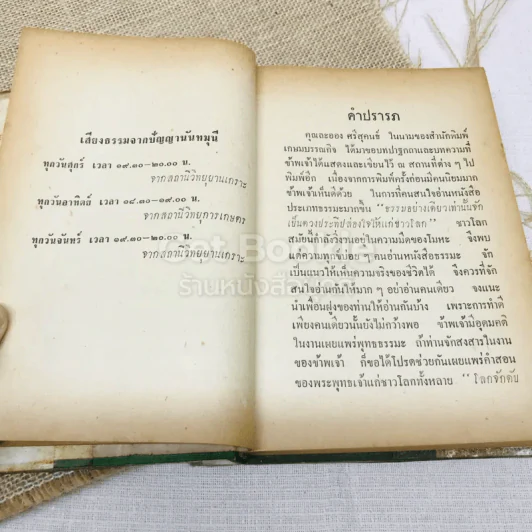 เสียงธรรมจากปัญญานันทมุนี
ทุกวันสุกร์ เวลา ๑๙.๓๐-๒๐.๐๐ น.
จากสถานีวิทยุยานเกราะ
ทุกวันอาทิตย์ เวลา ๑๘.๓๐-๑๙.๐๐ น.
จากสถานีวิทยุการเกษตร
ทุกวันจันทร์ เวลา ๑๙.๓๐-๒๐.๐๐ น.
จากสถานีวิทยุยานเกราะ
คำปรารภ
คุณละออง ศรีสุคนธ์ ในนามของสำนักพิมพ์
เกษมบรรณกิจ ได้มาขอบทปาฐกถาและบทความที่
ข้าพเจ้าได้แสดงและเขียนไว้ ณ สถานที่ต่าง ๆ ไป
พิมพ์อีก เนื่องจากการพิมพ์ครั้งก่อนมีคนนิยมมาก
ข้าพเจ้าเห็นดีด้วย ในการที่คนสนใจอ่านหนังสือ
ประเภทธรรมะมากขึ้น "ธรรมอย่างเดียวเท่านั้นจัก
เป็นดวงประทีปส่องใจให้แก่ชาวโลก" ชาวโลก
สมัยนี้กำลังวิ่งวุ่นอยู่ในความมืดของโมหะ จึงพบ
แต่ความทุกข์บ่อย ๆ คนอ่านหนังสือธรรมะ จัก
เป็นแนวให้เห็นความจริงของชีวิตได้ จึงควรที่จัก
สนใจอ่านกันให้มาก ๆ อย่าอ่านคนเดียว จงแนะ
นำเพื่อนฝูงของท่านให้อ่านกันบ้าง เพราะการทำดี
เพียงคนเดียวนั้นยังไม่กว้างพอ ข้าพเจ้ามีอุดมคติ
ในงานเผยแพร่พุทธธรรมะ ถ้าท่านจักสงสารในงาน
ของข้าพเจ้า ก็ขอได้โปรดช่วยกันเผยแพร่คำสอน
ของพระพุทธเจ้าแก่ชาวโลกทั้งหลาย "โลกจักดับ
ร้านหนังสือ